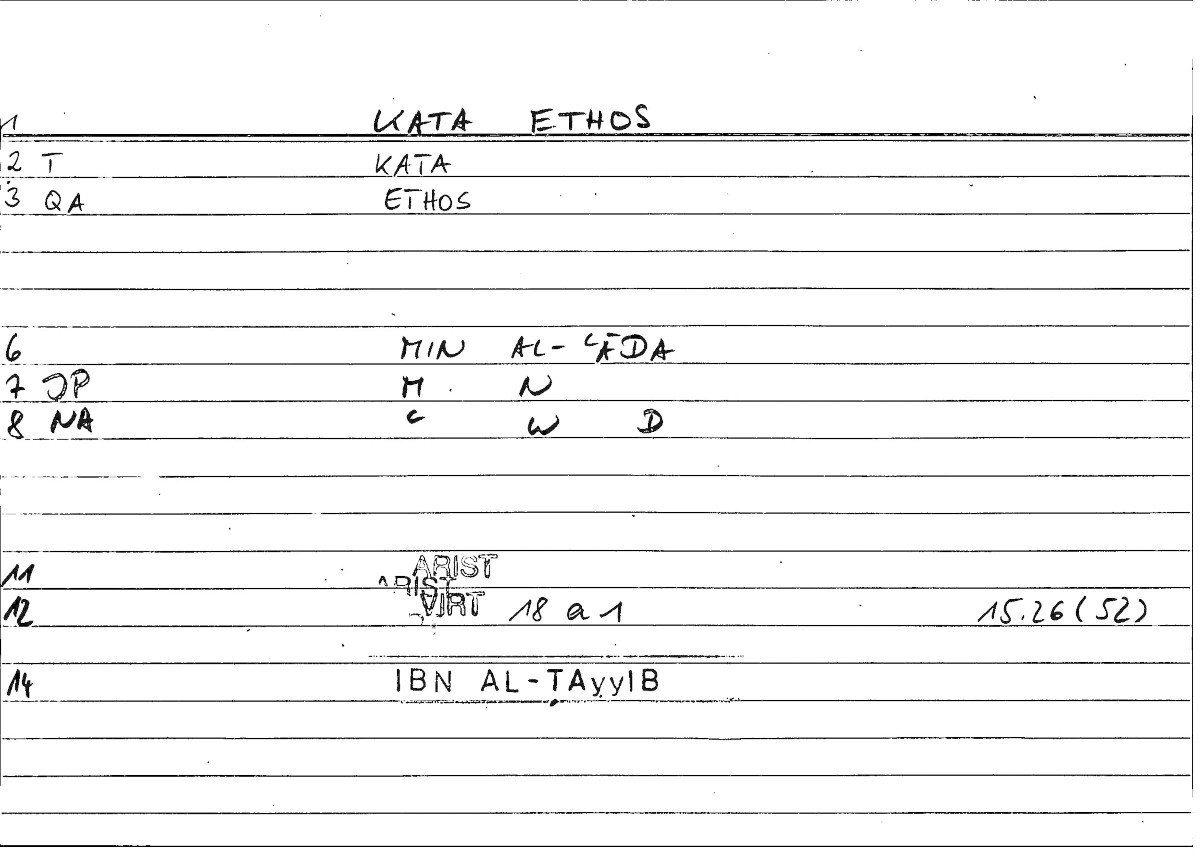 1 KATA ETHOS
2 T KATA
3 QA ETHOS
6 MIN AL-ʿĀDA
7 JP M N
8 NA ʿ W D
11 ARIST
ARIST
12 VIRT 18 a 1 15.26 (52)
14 IBN AL-ṬAyyIB